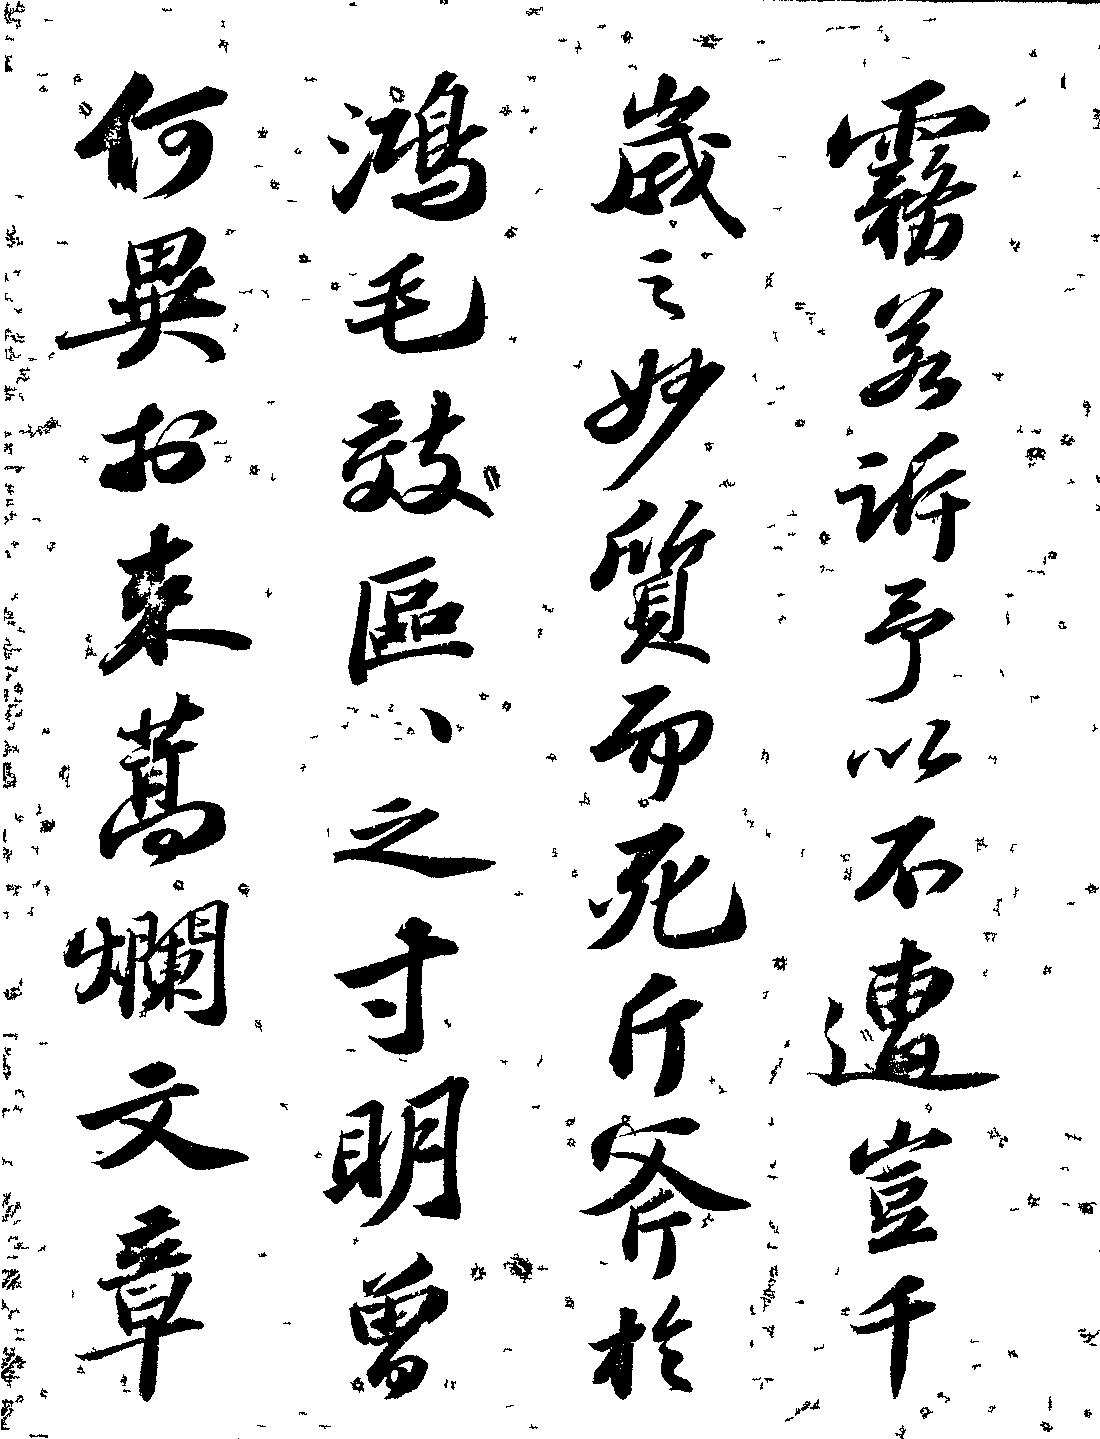 霧若訴予以不遭豈千
歲之妙質而死斤斧於
鴻毛效區〻之寸明曾
何異於束蒿爛文章